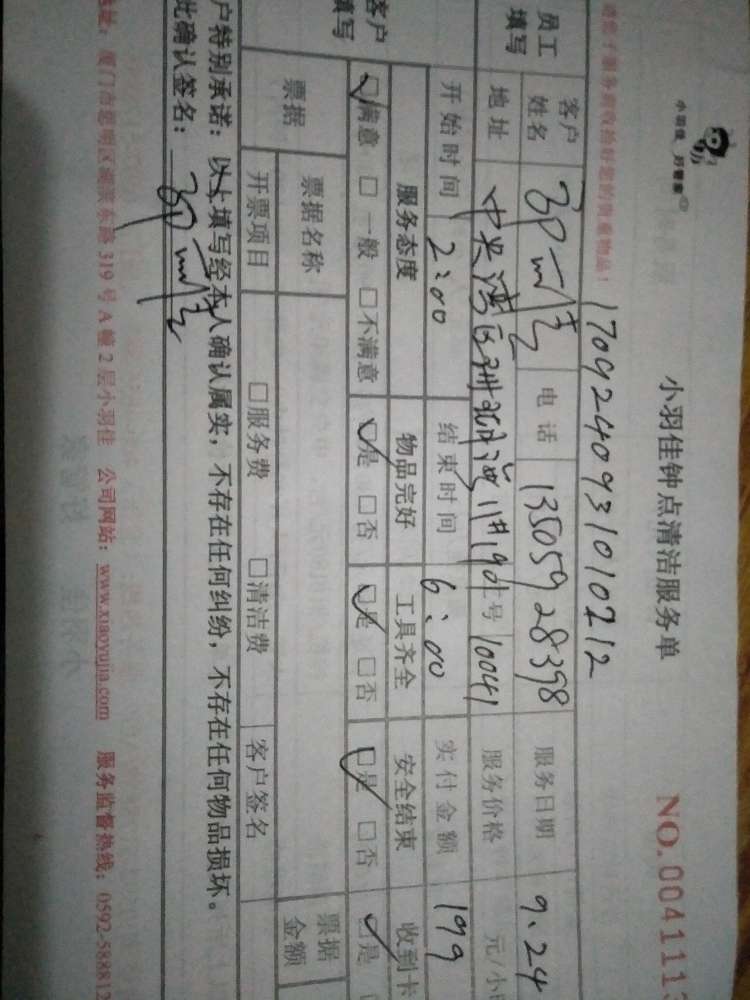 小羽佳 好管家
小羽佳钟点清洁服务单
NO.004111
170924093101012
员工填写
客户姓名
电话 13505928398
服务日期 9.24
地址
中央湾区
工号 10041
服务价格
元/小
开始时间 2:00
结束时间 6:00
实付金额 199
客户填写
服务态度 物品完好 工具齐全 安全结束 收到卡
☑满意 □一般 □不满意 ☑是 □否 ☑是 □否 ☑是 □否 ☑是
票据
票据名称
票据金额
开票项目 □服务费 □清洁费 客户签名
户特别承诺：以上填写经本人确认属实，不存在任何纠纷，不存在任何物品损坏。
此确认签名：
厦门市思明区湖滨东路319号A幢2层小羽佳 公司网站：www.xiaoyujia.com 服务监督热线：0592-588812